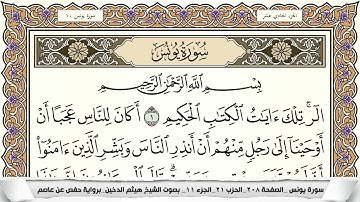 الجزء الحادي عشر
سورة يونس ١٠
سُورَةُ يُونُسَ
بِسْمِ ٱللَّهِ ٱلرَّحْمَٰنِ ٱلرَّحِيمِ
الٓر ۚ تِلْكَ ءَايَٰتُ ٱلْكِتَٰبِ ٱلْحَكِيمِ ١ أَكَانَ لِلنَّاسِ عَجَبًا أَنْ
أَوْحَيْنَآ إِلَىٰ رَجُلٍ مِّنْهُمْ أَنْ أَنذِرِ ٱلنَّاسَ وَبَشِّرِ ٱلَّذِينَ ءَامَنُوٓا۟
سورة يونس _الصفحة ٢٠٨_الحزب ٢١_الجزء ١١_ بصوت الشيخ هيثم الدخين_برواية حفص عن عاصم